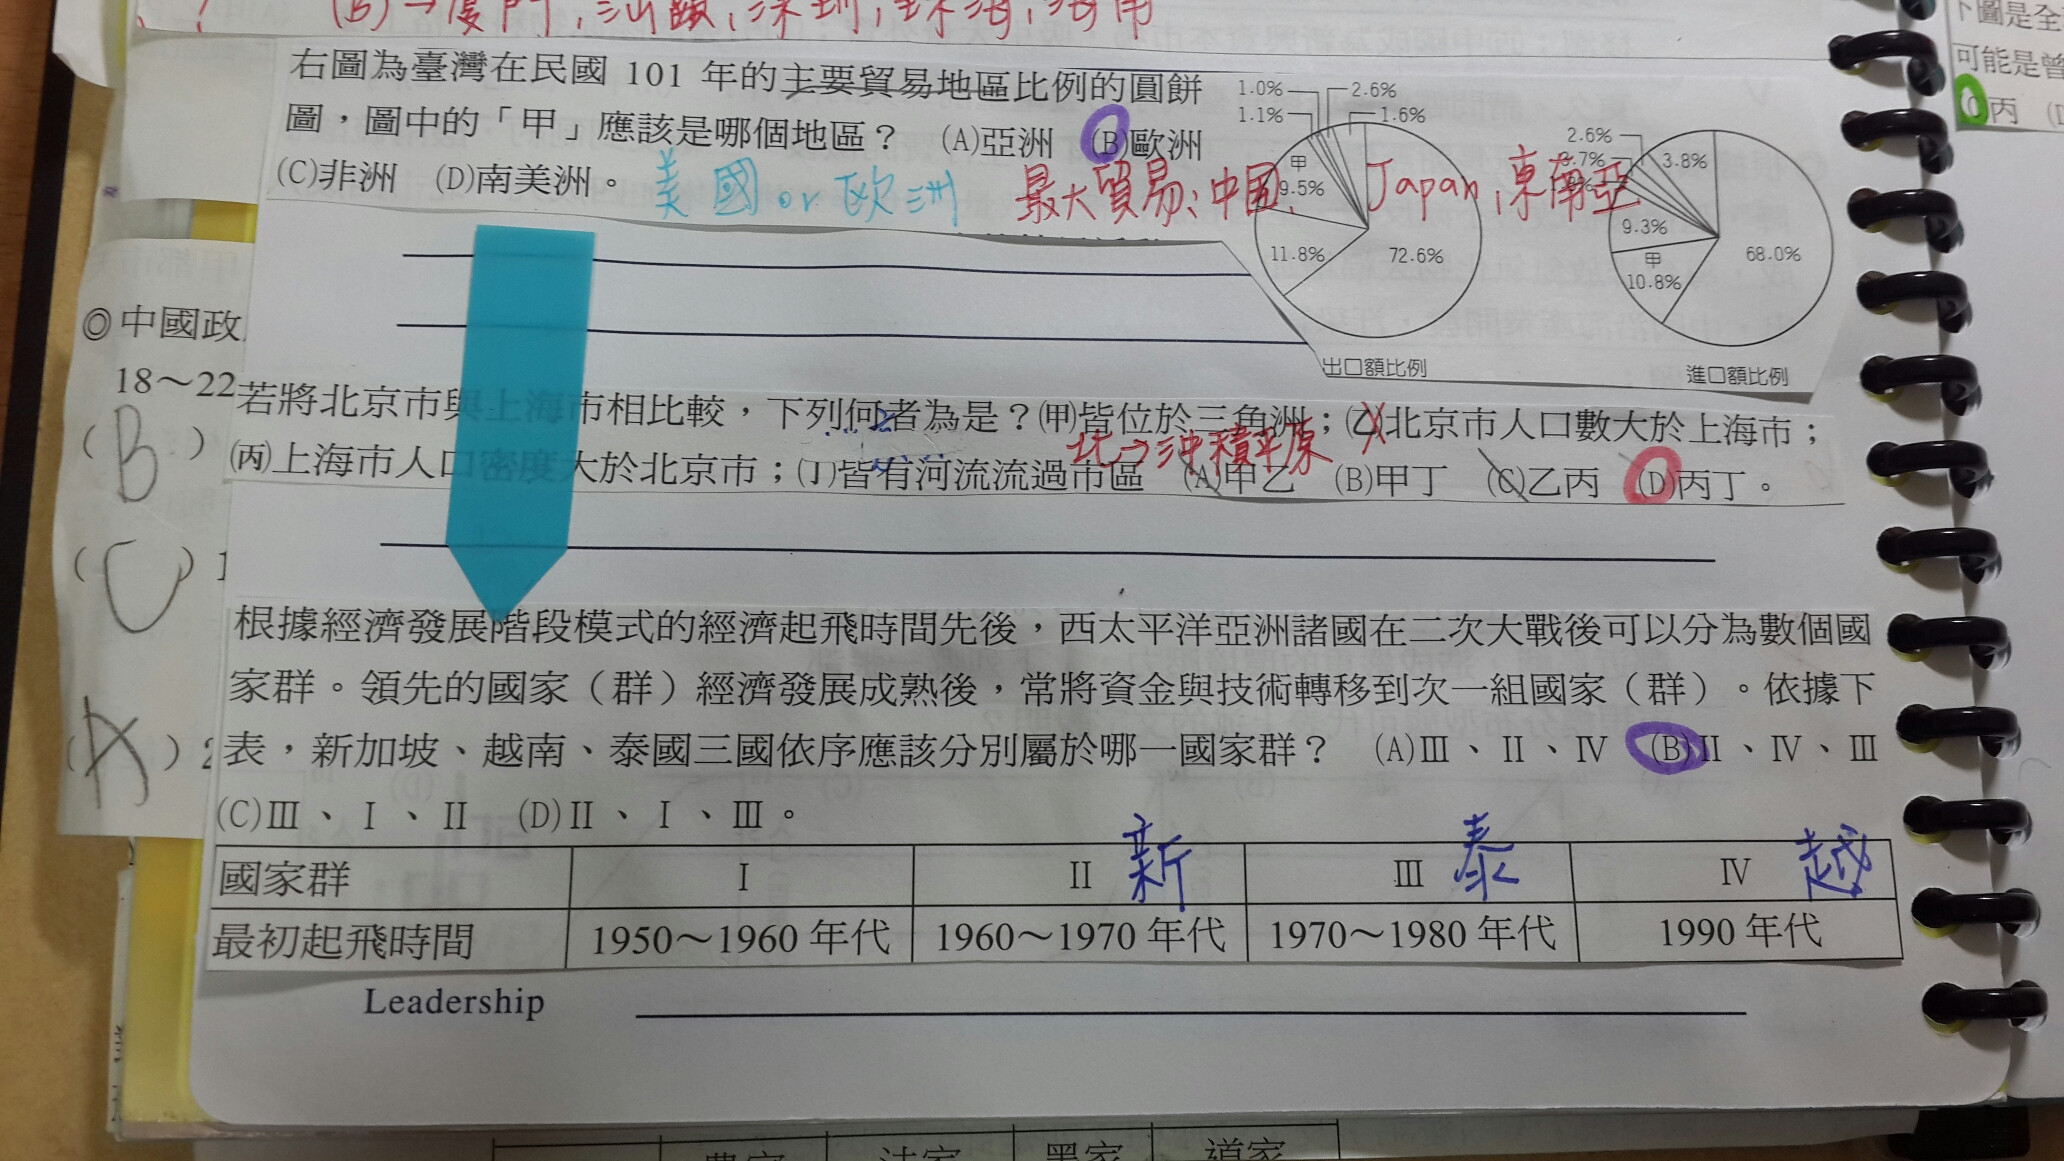 (B)→廈門,汕頭,深圳,珠海,海南
右圖為臺灣在民國 101 年的主要貿易地區比例的圓餅
圖，圖中的「甲」應該是哪個地區？ (A)亞洲 (B)歐洲
(C)非洲 (D)南美洲。
美國 or 欧洲 最大貿易:中国, Japan,東南亞
1.0%
2.6%
1.1%
1.6%
甲
9.5%
11.8%
72.6%
出口額比例
2.6%
3.8%
9.3%
甲
10.8%
68.0%
進口額比例
下圖是全
可能是曾
(C)丙
◎中國政
18～22
(B)
(C)
(A)
若將北京市與上海市相比較，下列何者為是？(甲)皆位於三角洲；(乙)北京市人口數大於上海市；
北→沖積平原
(丙)上海市人口密度大於北京市；(丁)皆有河流流過市區 (A)甲乙 (B)甲丁 (C)乙丙 (D)丙丁。
根據經濟發展階段模式的經濟起飛時間先後，西太平洋亞洲諸國在二次大戰後可以分為數個國
家群。領先的國家（群）經濟發展成熟後，常將資金與技術轉移到次一組國家（群）。依據下
表，新加坡、越南、泰國三國依序應該分別屬於哪一國家群？ (A)Ⅲ、Ⅱ、Ⅳ (B)Ⅱ、Ⅳ、Ⅲ
(C)Ⅲ、Ⅰ、Ⅱ (D)Ⅱ、Ⅰ、Ⅲ。
國家群 Ⅰ Ⅱ 新 Ⅲ 泰 Ⅳ 越
最初起飛時間 1950～1960 年代 1960～1970 年代 1970～1980 年代 1990 年代
Leadership
農家 法家 墨家 道家